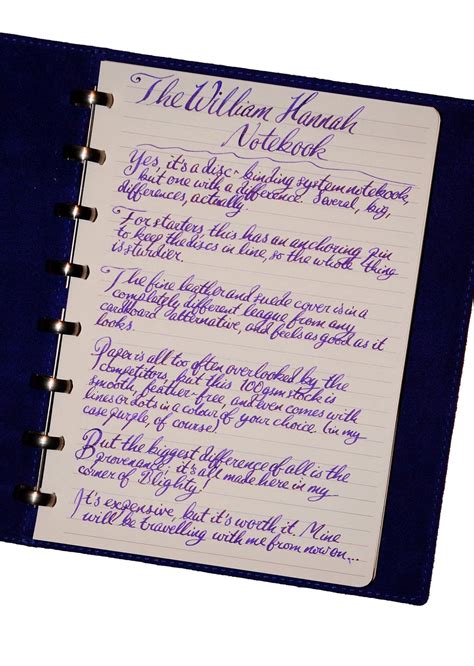 The William Hannah
Notebook
Yes, it's a disc-binding system notebook,
but one with a difference. Several, big,
differences, actually.
For starters, this has an anchoring pin
to keep the discs in line, so the whole thing
is sturdier.
The fine leather and suede cover is in a
completely different league from any
cardboard alternative, and feels as good as it
looks.
Paper is all too often overlooked by the
competitors, but this 100gsm stock is
smooth, feather-free, and even comes with
lines or dots in a colour of your choice. (in my
case purple, of course)
But the biggest difference of all is the
provenance; it's all made here in my
corner of Blighty!
It's expensive, but it's worth it. Mine
will be travelling with me from now on...